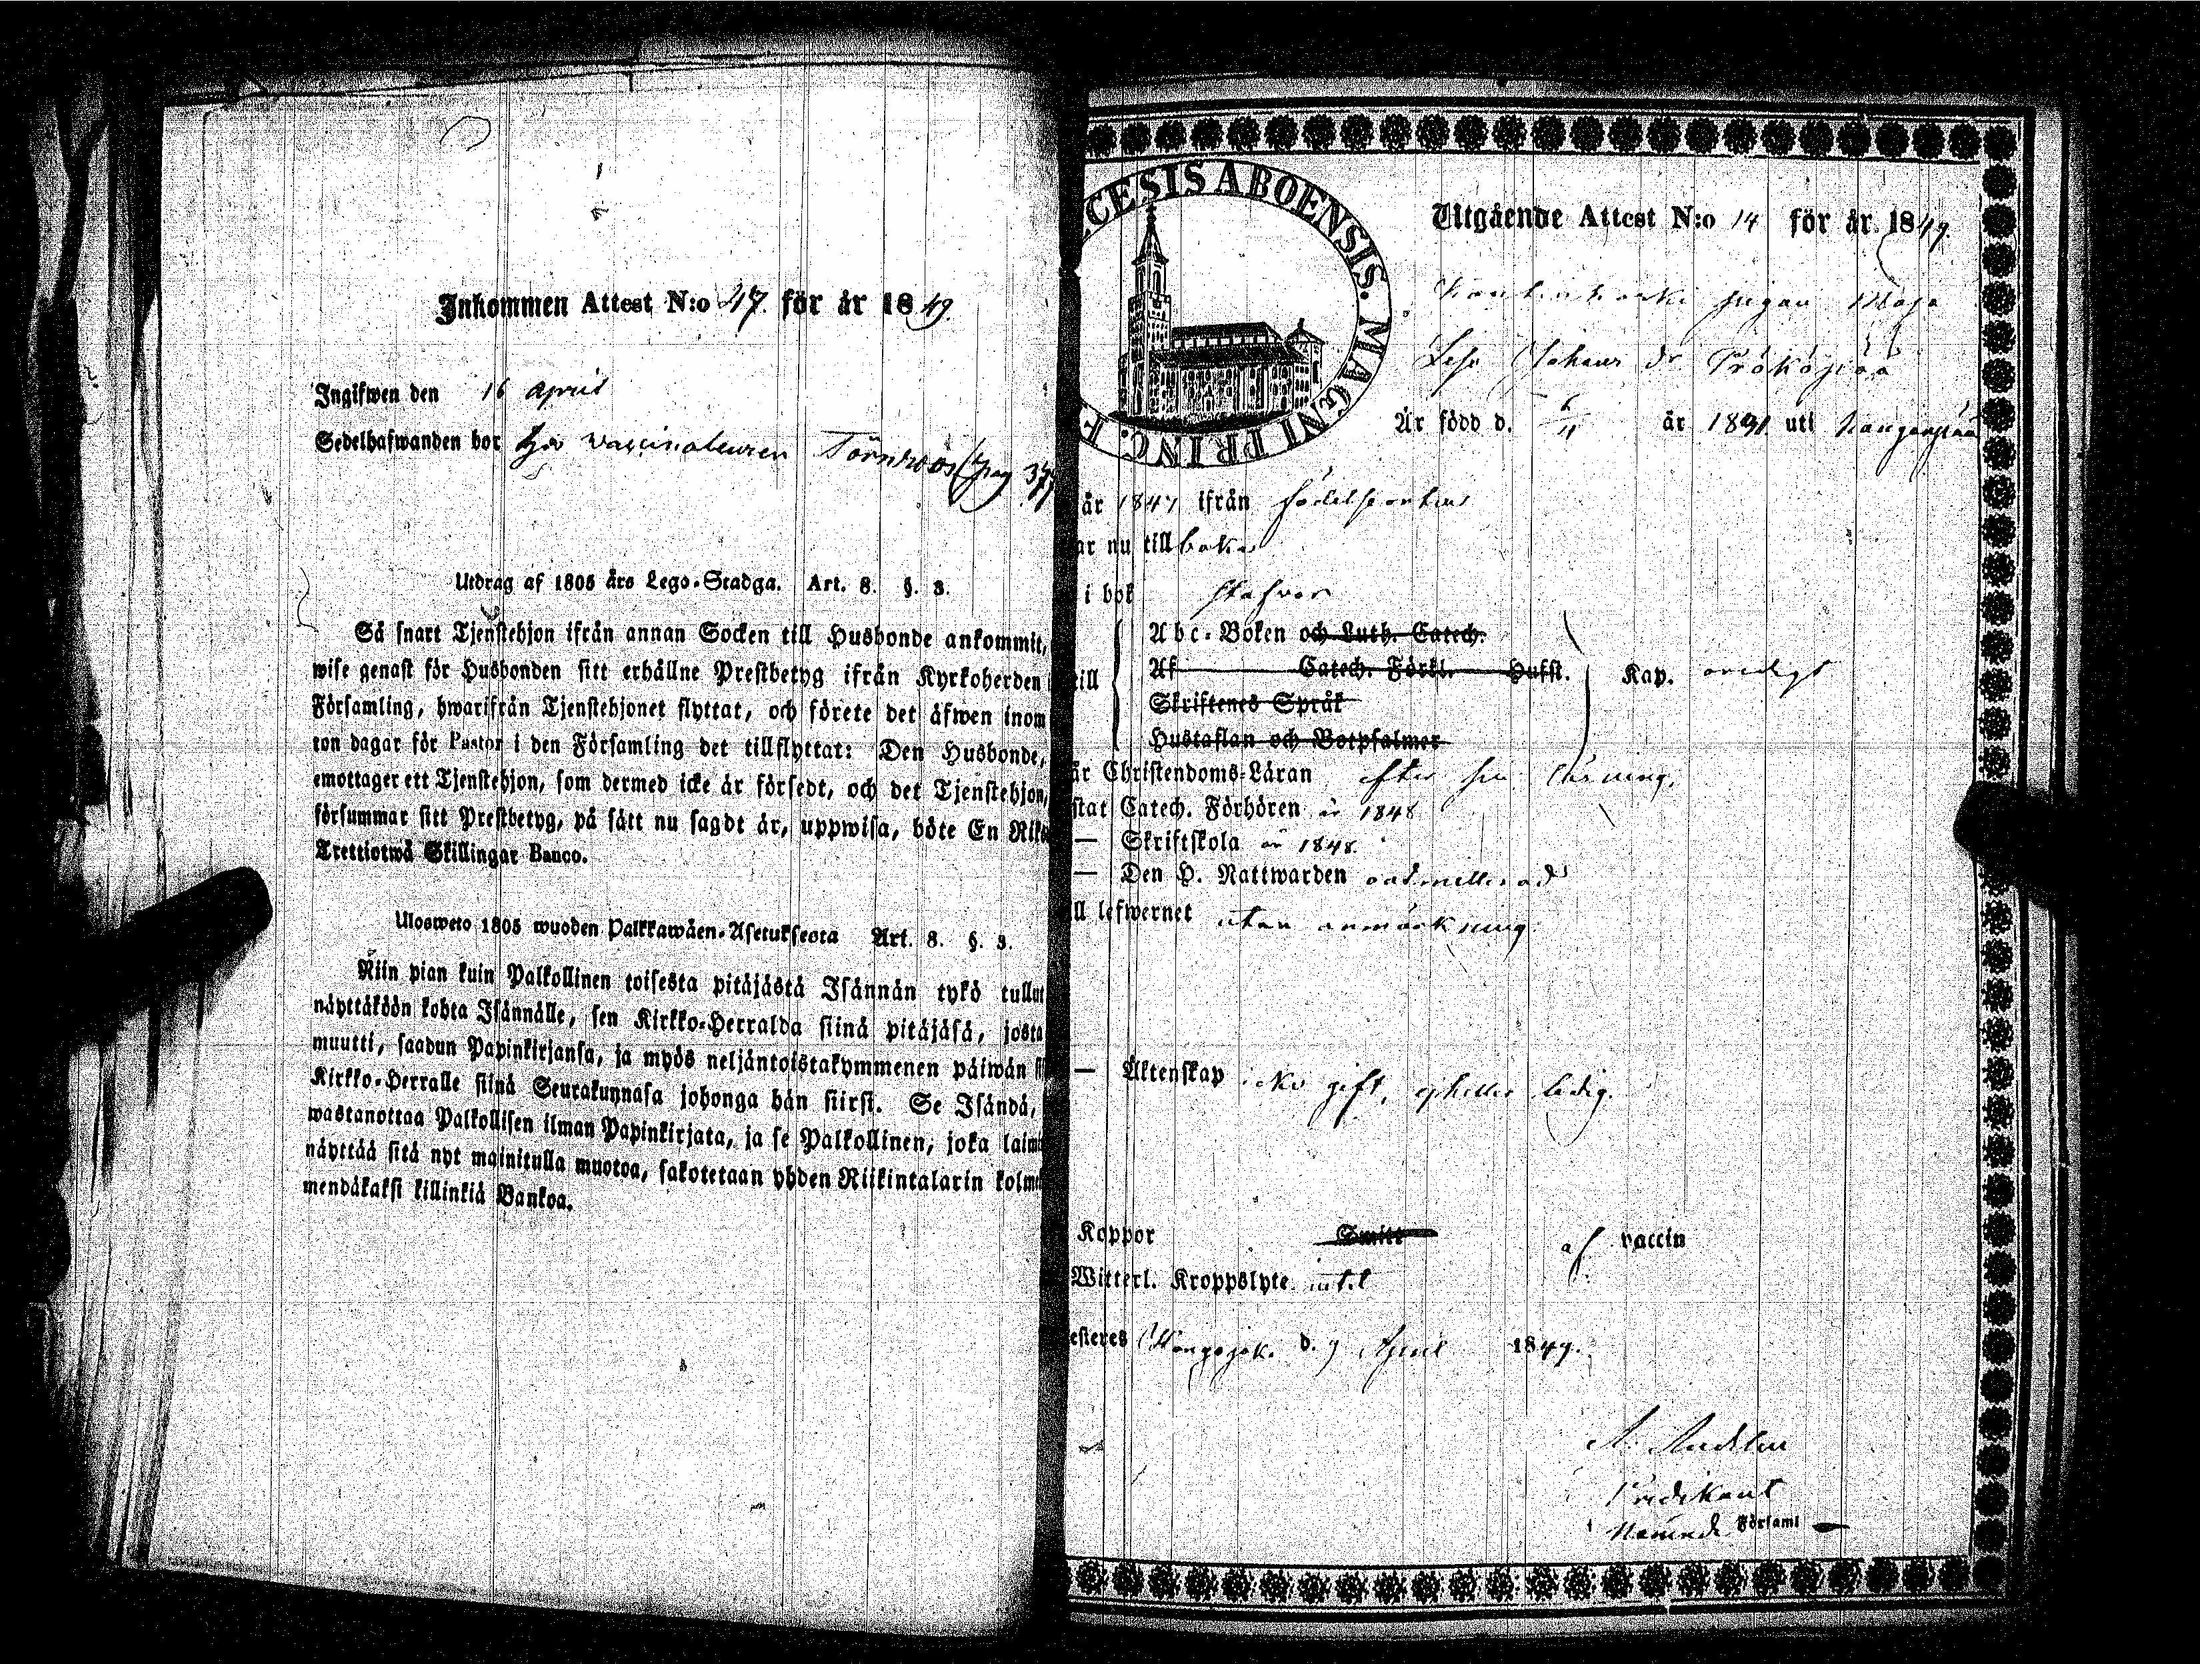 Inkommen Attest N:o 47. för år 1849.
Ingifwen den 16 April
Sedelhafwanden bor hos vaccinateuren Törnroos pag 377
Utdrag af 1805 års Lego-Stadga. Art. 8. §. 3.
Så snart Tjenstehjon ifrån annan Socken till Husbonde ankommit,
wise genast för Husbonden sitt erhållne Prestbetyg ifrån Kyrkoherden
Församling, hwarifrån Tjenstehjonet flyttat, och förete det äfwen inom
ton dagar för Pastor i den Församling det tillflyttat: Den Husbonde,
emottager ett Tjenstehjon, som dermed icke är försedt, och det Tjenstehjon,
försummar sitt Prestbetyg, på sätt nu sagdt är, uppwisa, böte En Riks
Trettiotwå Skillingar Banco.
Ulosweto 1805 wuoden Palkkawäen-Asetuksesta Art. 8. §. 3.
Niin pian kuin Palkollinen toisesta pitäjästä Isännän tykö tullut
näyttäköön kohta Isännälle, sen Kirkko-Herralda siinä pitäjäsä, josta
muutti, saadun Papinkirjansa, ja myös neljäntoistakymmenen päiwän si
Kirkko-Herralle siinä Seurakunnasa johonga hän siirsi. Se Isändä,
wastanottaa Palkollisen ilman Papinkirjata, ja se Palkollinen, joka laimi
näyttää sitä nyt mainitulla muotoa, sakotetaan yhden Riikintalarin kolme
mendäkaksi killinkiä Bankoa.
CESIS ABOENSIS. MAGNI PRINC. F
Utgående Attest N:o 14 för år 1849.
pigan Maja
Johans dr Prököpiää
Är född d. 6/11 år 1831 uti Kangaspää
år 1847 ifrån födelseorten
ar nu tillbaka
i bok stafvar
till Abc-Boken och Luth. Catech.
Af Catech. Förkl. Hufst. Kap. oredigt
Skriftenes Språk
Hustaflan och Botpsalmer
är Christendoms-Läran efter sin läsning,
stat Catech. Förhören år 1848
— Skriftskola år 1848.
— Den H. Nattwarden oadmitterad
ll lefwernet utan anmärkning.
— Äktenskap icke gift, ej heller ledig.
Koppor Smitt af vaccin
Witterl. Kroppslyte intet
esteres d. 9 April 1849.
Predikant
Församl